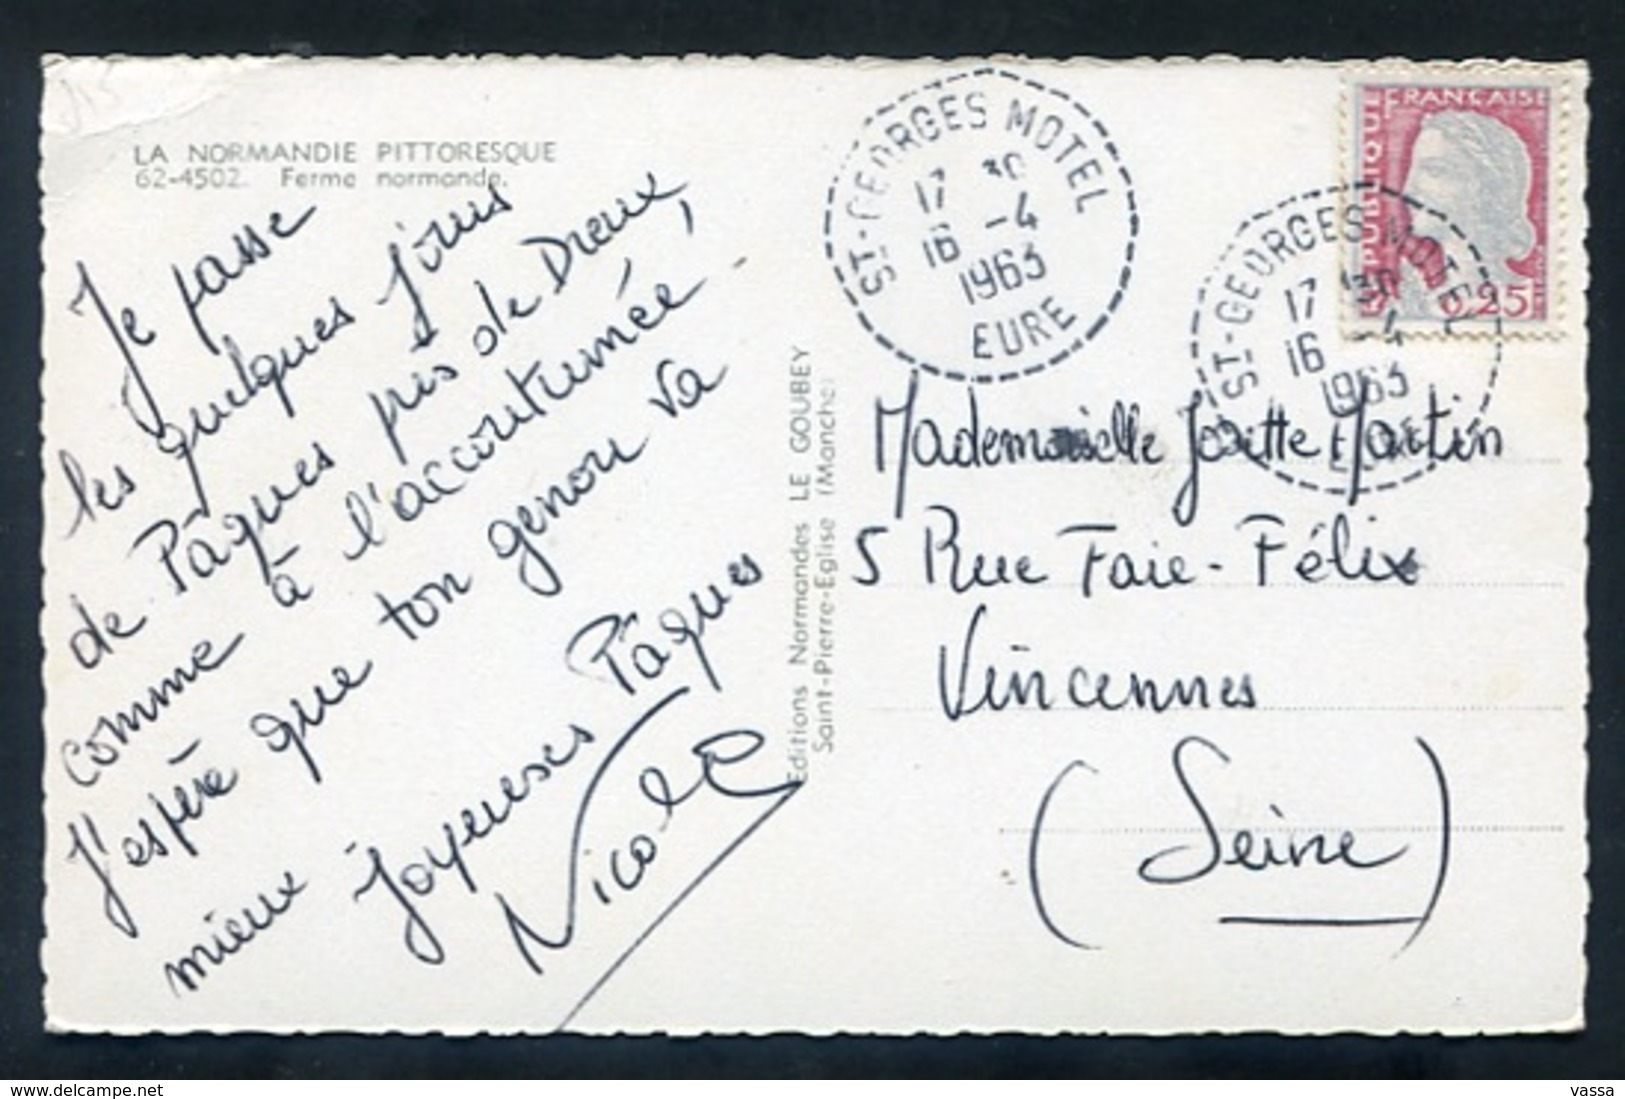 LA NORMANDIE PITTORESQUE
62-4502. Ferme normande.
Je passe
les quelques jours
de Pâques près de Dreux,
comme à l'accoutumée.
J'espère que ton genou va
mieux Joyeuses Pâques
Nicole
Editions Normandes LE GOUBEY
Saint-Pierre-Eglise (Manche)
ST-GEORGES MOTEL
17 30
16 -4
1963
EURE
REPUBLIQUE FRANÇAISE
0,25
ST-GEORGES MOTEL
17 30
16 -4
1963
EURE
Mademoiselle Josette Martin
5 Rue Faie-Félix
Vincennes
(Seine)
vassa